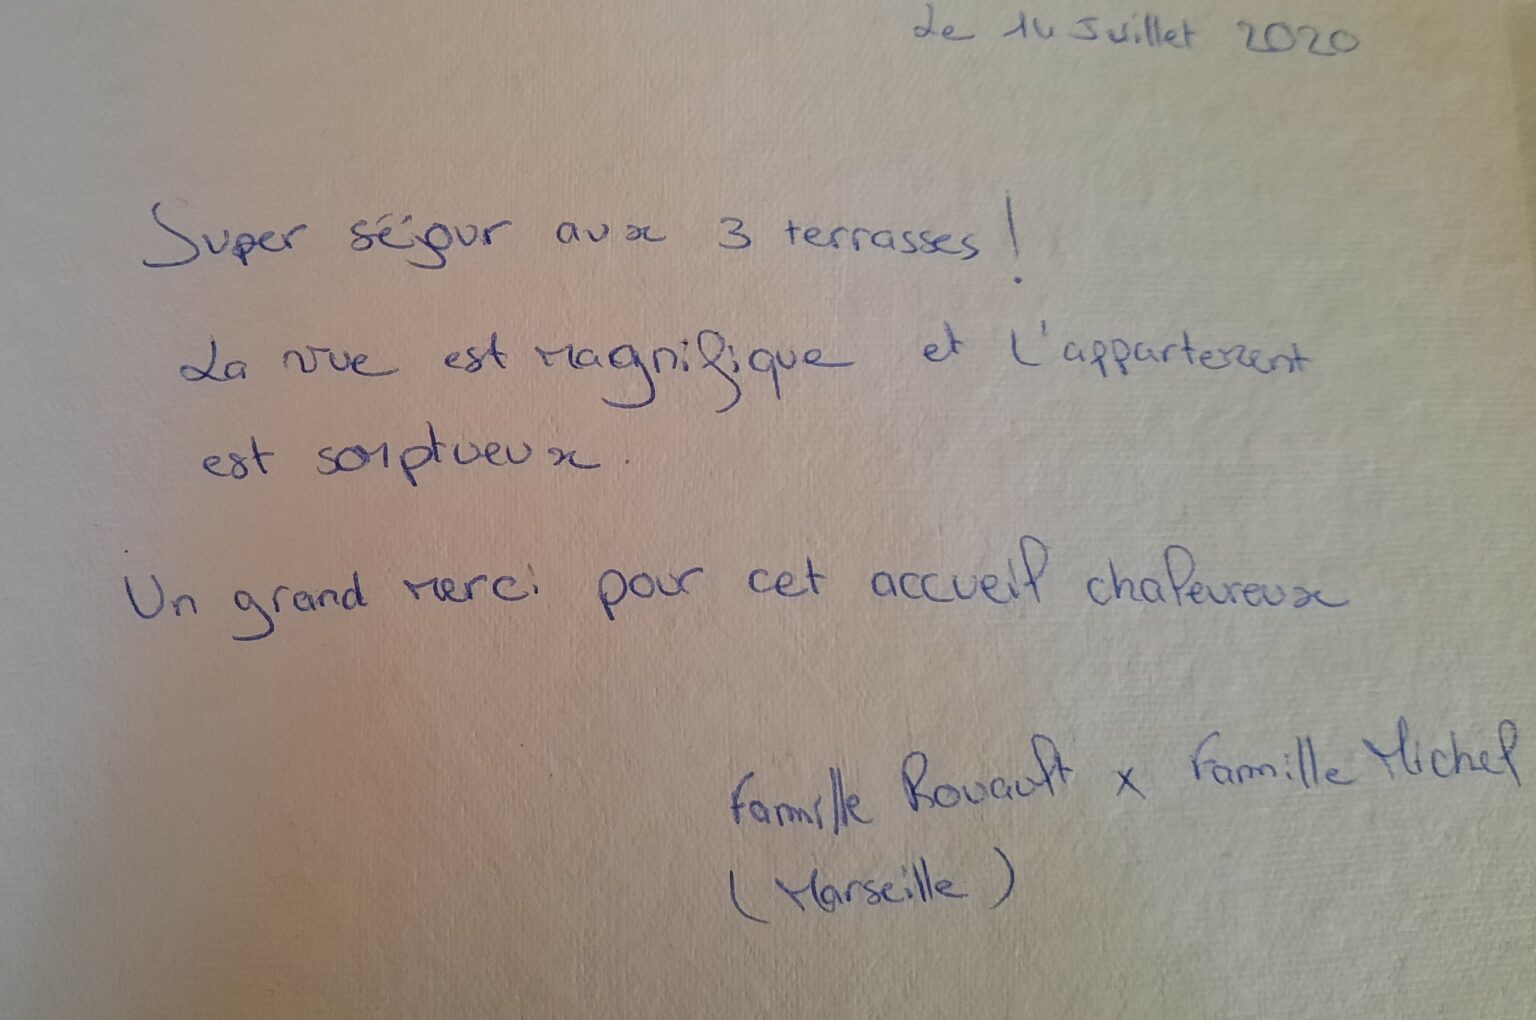 Le 14 Juillet 2020
Super séjour aux 3 terrasses !
La vue est magnifique et l'appartement
est somptueux.
Un grand merci pour cet accueil chaleureux
Famille Rouault x Famille Michel
(Marseille)